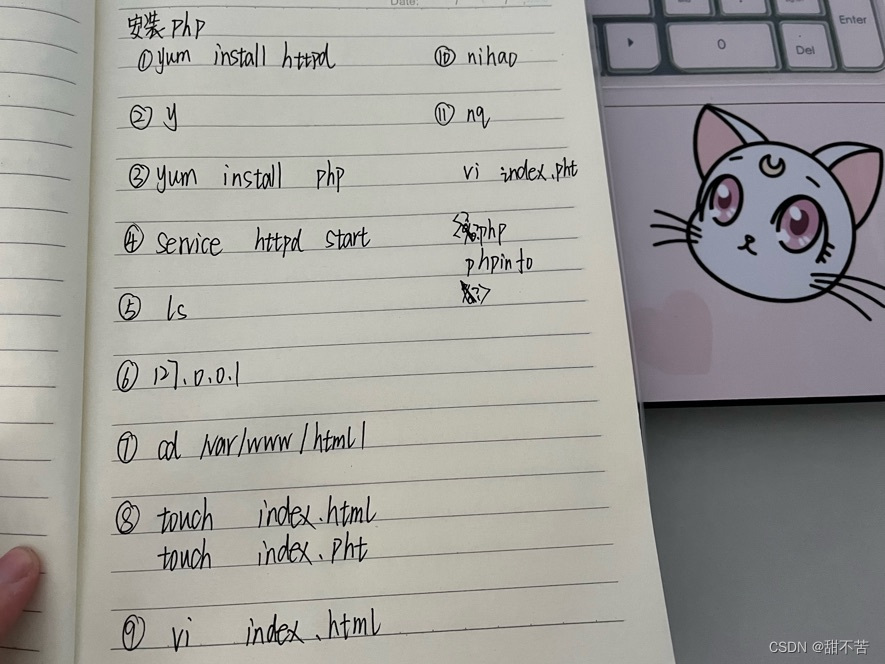 Date:
安装php
① yum install httpd
② y
③ yum install php
④ service httpd start
⑤ ls
⑥ 127.0.0.1
⑦ cd /var/www/html
⑧ touch index.html
touch index.pht
⑨ vi index.html
⑩ nihao
⑪ nq
vi index.pht
php
phpinfo
?>
Enter
0
Del
CSDN @甜不苦